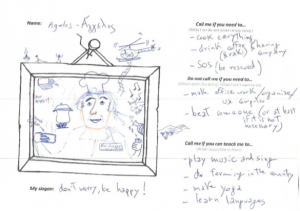 Name: Agnelos - Άγγελος
Call me if you need to...
- cook everything
- drink coffee & having
(raki) anyday
- SOS (be rescued)
Do not call me if you need to...
- make office work/organize/
use
- beat someone (or at least
if it is not
necessary)
Call me if you can teach me to...
- play music and sing
- do farming in the country
- make yoga
- learn languages
My slogan: don't worry, be happy!